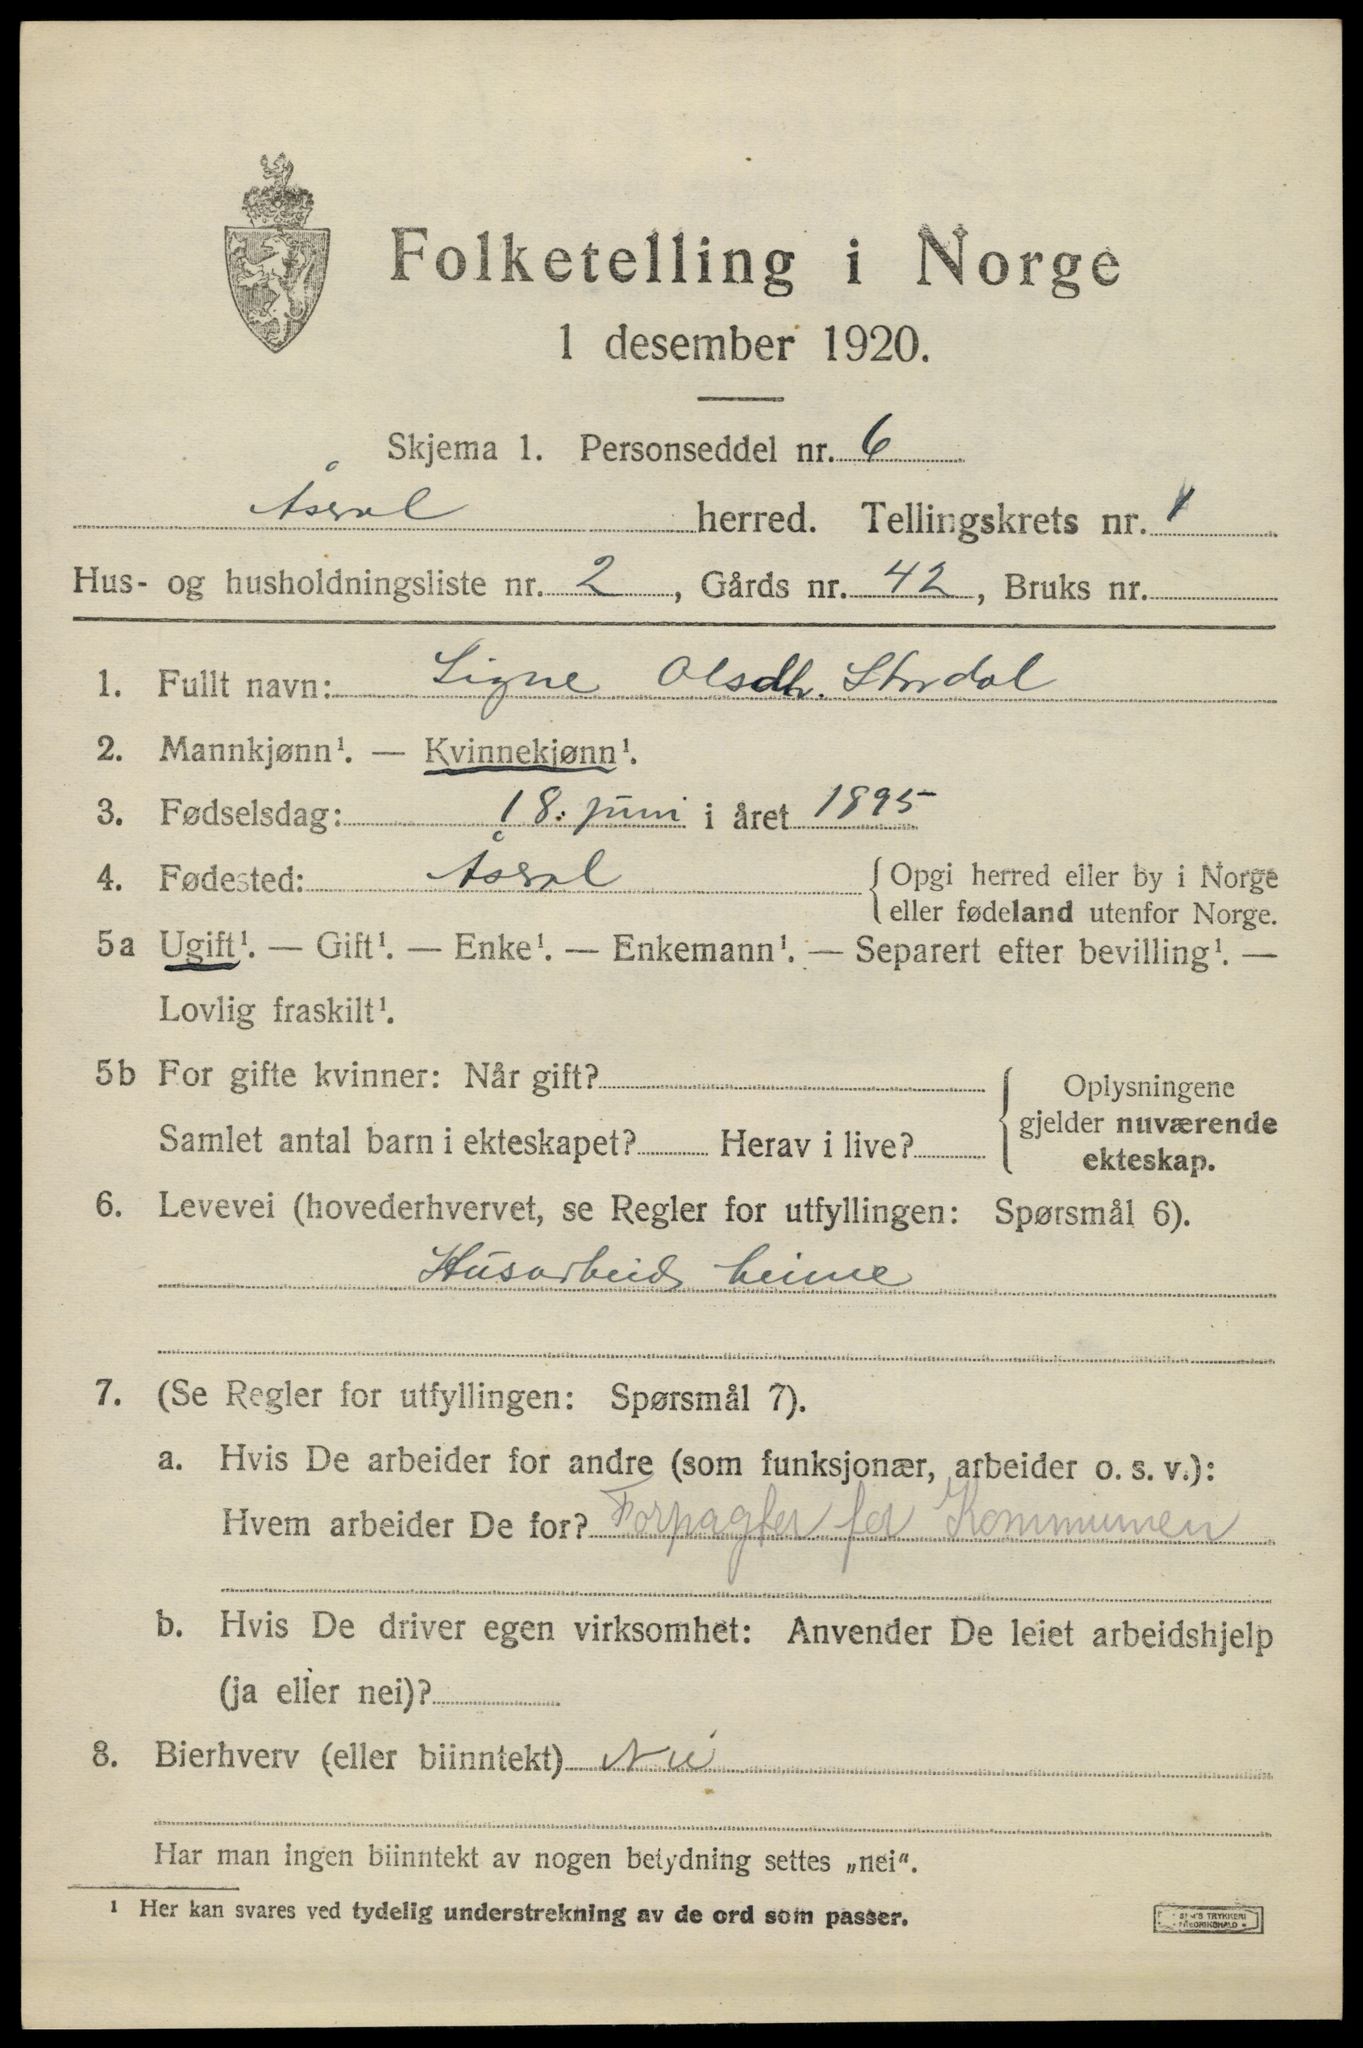 Folketelling i Norge
1 desember 1920.
Skjema 1. Personseddel nr. 6
Åseral herred. Tellingskrets nr. 1
Hus- og husholdningsliste nr. 2, Gårds nr. 42, Bruks nr.
1. Fullt navn: Signe Olsdtr. Stordal
2. Mannkjønn¹. — Kvinnekjønn¹.
3. Fødselsdag: 18. juni i året 1895
4. Fødested: Åseral {Opgi herred eller by i Norge
eller fødeland utenfor Norge.
5a Ugift¹. — Gift¹. — Enke¹. — Enkemann¹. — Separert efter bevilling¹. —
Lovlig fraskilt¹.
5b For gifte kvinner: Når gift? {Oplysningene
gjelder nuværende
Samlet antal barn i ekteskapet? Herav i live?
ekteskap.
6. Levevei (hovederhvervet, se Regler for utfyllingen: Spørsmål 6).
Husarbeid heime
7. (Se Regler for utfyllingen: Spørsmål 7).
a. Hvis De arbeider for andre (som funksjonær, arbeider o. s. v.):
Hvem arbeider De for? Forpagter for Kommunen
b. Hvis De driver egen virksomhet: Anvender De leiet arbeidshjelp
(ja eller nei)?
8. Bierhverv (eller biinntekt) Nei
Har man ingen biinntekt av nogen betydning settes „nei".
¹ Her kan svares ved tydelig understrekning av de ord som passer.
TRYKKERI
FREDRIKSHALD